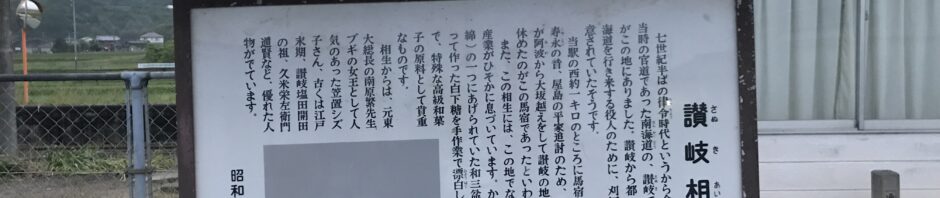 讃岐相
さぬき あい
七世紀半ばの律令時代というから
当時の官道であった南海道の、讃岐
がこの地にありました。讃岐から都
海道を行き来する役人のために、刈
意されていたそうです。
当駅の西約一キロのところに馬宿
寿永の昔、屋島の平家追討のため、
が阿波から大坂越えをして讃岐の地
休めたのがこの馬宿であったといわ
また、この相生には、この地でな
産業がひそかに息づいています。か
綿）の一つにあげられていた和三盆
って作った白下糖を手作業で漂白し
で、特殊な高級和菓
子の原料として貴重
なものです。
相生からは、元東
大総長の南原繁先生、
ブギの女王として人
気のあった笠置シズ
子さん、古くは江戸
末期、讃岐塩田開田
の祖、久米栄左衛門
通賢など、優れた人
物がでています。
昭和